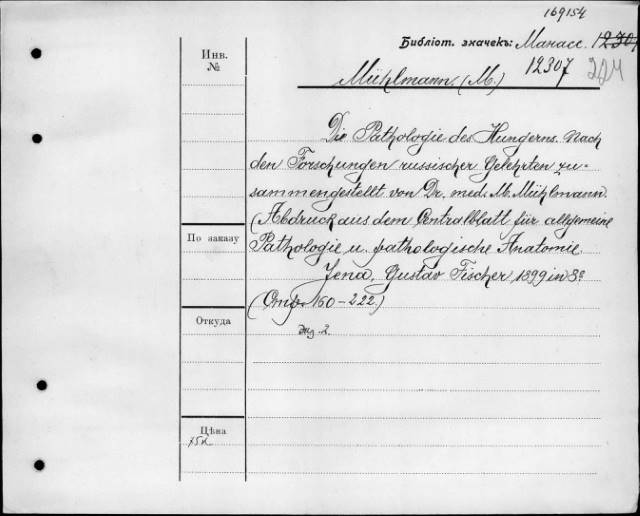 169154
Библіот. значекъ: Манасс. 12307
Инв. №
12307
Mühlmann, (M.)
Die Pathologie des Hungerns. Nach
den Forschungen russischer Gelehrten zu-
sammengestellt von Dr. med. M. Mühlmann.
(Abdruck aus dem Centralblatt für allgemeine
По заказу
Pathologie u. pathologische Anatomie
Jena, Gustav Fischer 1899 in 8º
160-222)
Откуда
Экз. 2.
Цѣна
75к